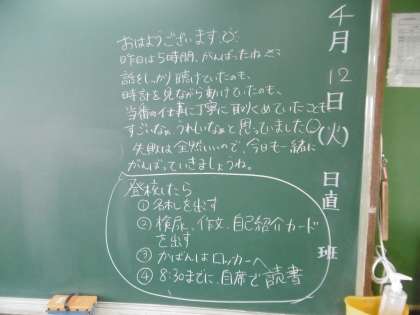 4月12日(火) 日直 班
おはようございます。
昨日は5時間、がんばったね。
話をしっかり聴けていたのも、
時計を見ながら動けていたのも、
当番の仕事に丁寧に取りくめていたことも
すごいなぁ、うれしいなぁと思っていました
失敗は全然いいので、今日も一緒に
がんばっていきましょうね。
登校したら
① 名札を出す
② 検尿、作文、自己紹介カード
を出す
③ かばんはロッカーへ
④ 8:30までに自席で読書